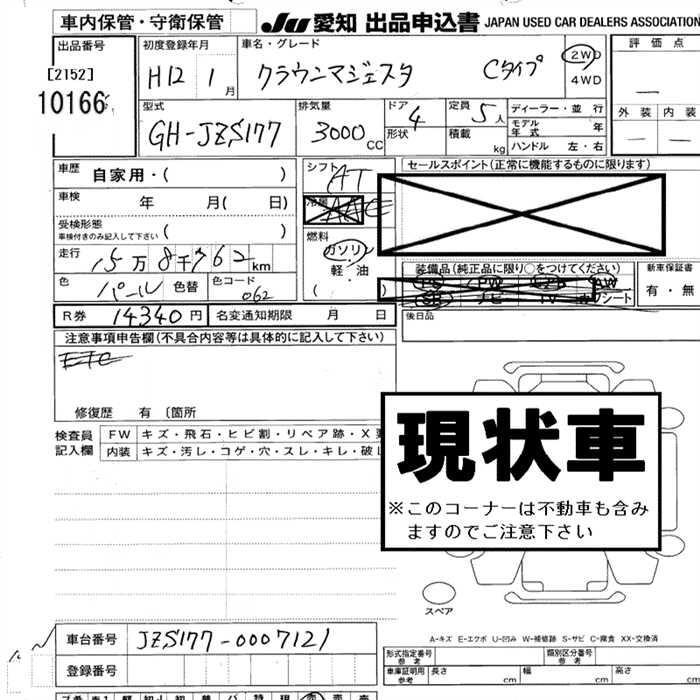 車内保管・守衛保管
JU 愛知 出品申込書 JAPAN USED CAR DEALERS ASSOCIATION
出品番号
[2152]
10166
初度登録年月
H12 1月
車名・グレード
クラウンマジェスタ Cタイプ
2WD
4WD
評価点
外装 内装
型式
GH-JZS177
排気量
3000 CC
ドア 4
形状
定員 5人
積載 kg
ディーラー・並行
モデル年式 年
ハンドル 左・右
車歴 自家用・( )
車検 年 月( 日)
受検形態
車検付きのみ記入して下さい ( )
走行 15万8千762km
色 パール 色替
色コード 062
シフト AT
冷房 AAC
燃料
ガソリン
軽・油
( )
セールスポイント(正常に機能するものに限ります)
装備品(純正品に限り○をつけてください)
PS PW エアB AW
SR ナビ TV カワシート
新車保証書
有・無
後日品
R券 14340円
名変通知期限 月 日
注意事項申告欄(不具合内容等は具体的に記入して下さい)
ETC
修復歴 有 〔箇所
検査員記入欄
FW キズ・飛石・ヒビ割・リペア跡・X
内装 キズ・汚レ・コゲ・穴・スレ・キレ・破レ
現状車
※このコーナーは不動車も含み
ますのでご注意下さい
スペア
A-キズ E-エクボ U-凹み W-補修跡 S-サビ C-腐食 XX-交換済
車台番号 JZS177-0007121
登録番号
形式指定番号 参考
類別区分番号 参考
車庫証明用 参考 長さ cm 幅 cm 高さ cm